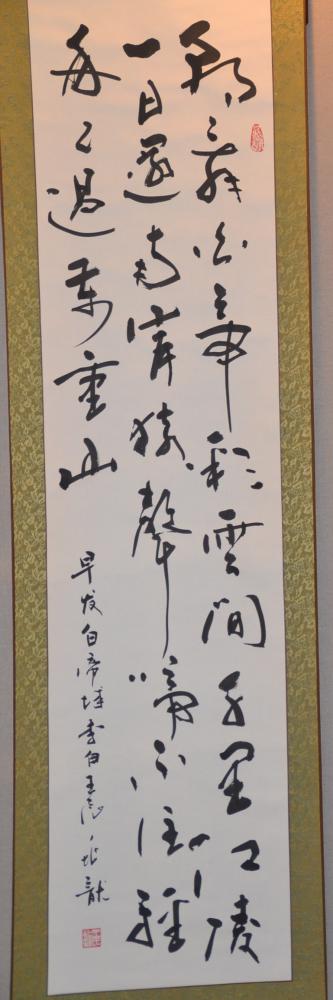 朝辞白帝彩雲間千里江陵
一日還兩岸猿聲啼不住輕
舟已過萬重山
早发白帝城李白